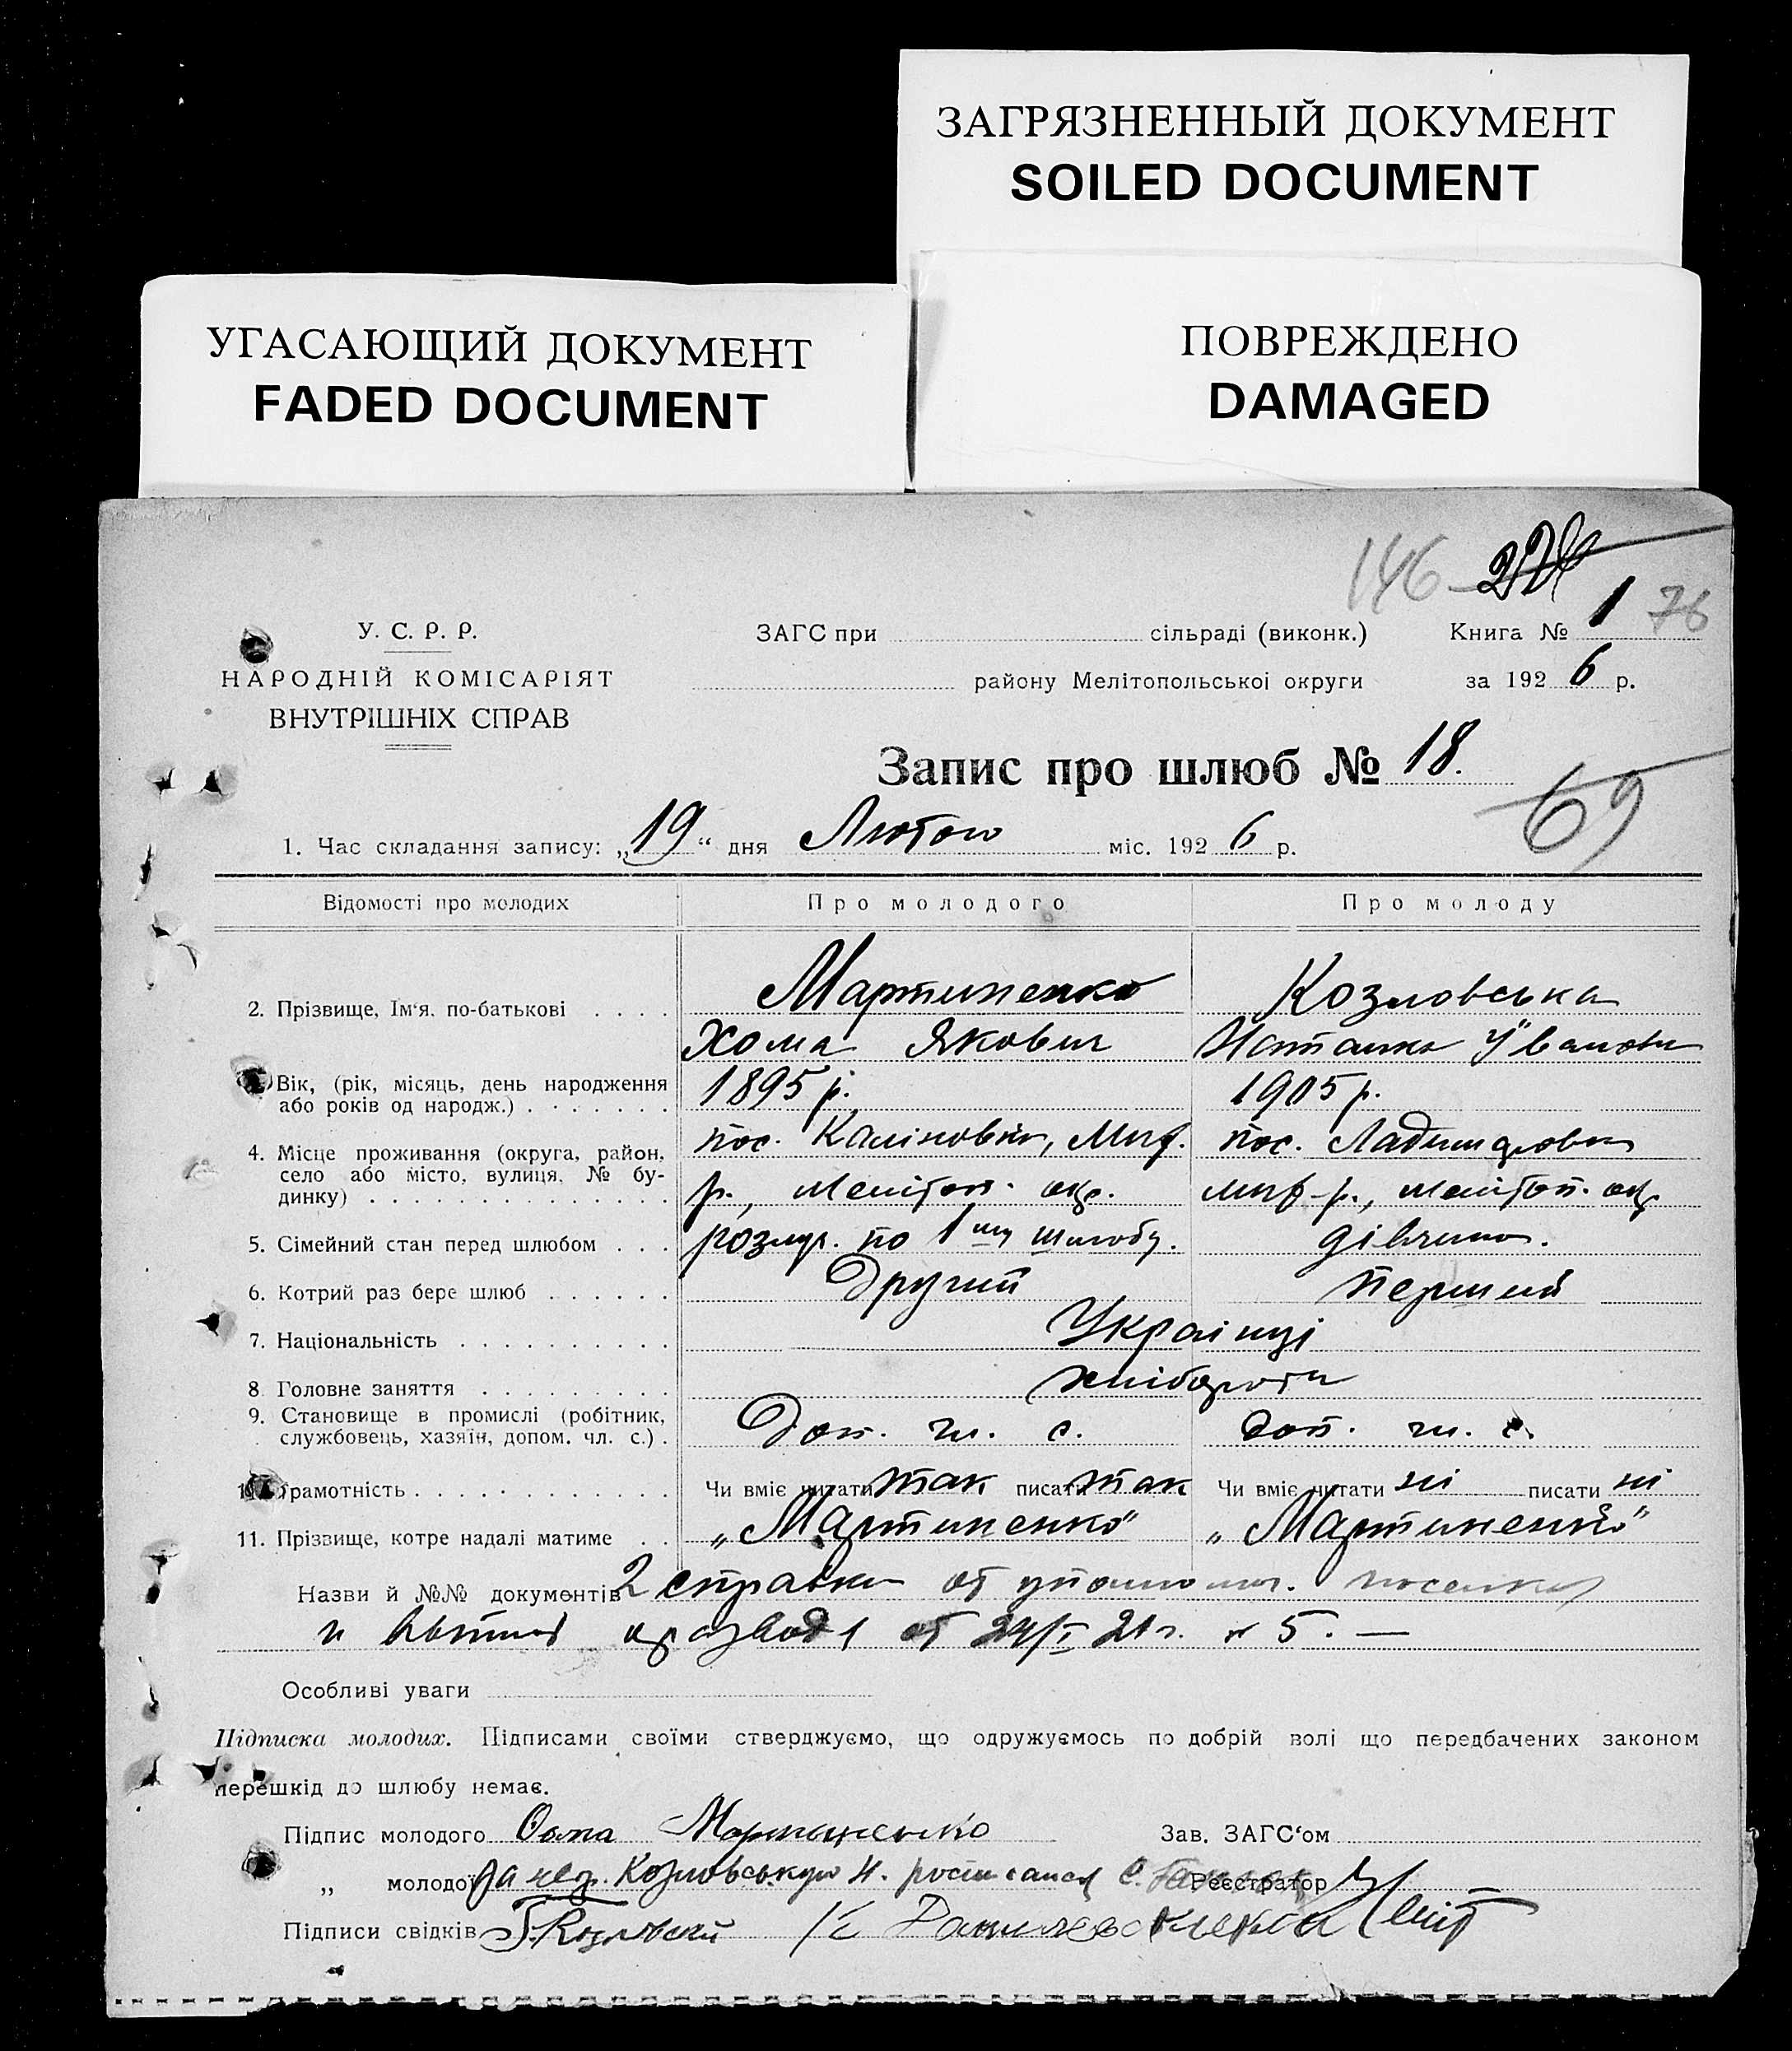 ЗАГРЯЗНЕННЫЙ ДОКУМЕНТ
SOILED DOCUMENT
УГАСАЮЩИЙ ДОКУМЕНТ
FADED DOCUMENT
ПОВРЕЖДЕНО
DAMAGED
146
У. С. Р. Р.
НАРОДНІЙ КОМІСАРІЯТ
ВНУТРІШНІХ СПРАВ
ЗАГС при сільраді (виконк.)
району Мелітопольської округи
Книга № 1 76
за 1926 р.
Запис про шлюб № 18.
69
1. Час складання запису: „19“ дня Лютого міс. 1926 р.
Відомості про молодих Про молодого Про молоду
2. Прізвище, Ім‘я, по-батькові Мартиненко Козловська
Хома Якович Наталка Івановна
Вік, (рік, місяць, день народження 1895 р. 1905 р.
або років од народж.)
4. Місце проживання (округа, район, пос. Каліновка, пос.
село або місто, вулиця, № бу- р., Мелітоп. окр. р., Мелітоп. окр.
динку)
5. Сімейний стан перед шлюбом по 1му шлюбу. дівчина.
6. Котрий раз бере шлюб Другий Перший
7. Національність Українці
8. Головне заняття хлібороби
9. Становище в промислі (робітник, Доп. чл. с. доп. чл. с.
службовець, хазяїн, допом. чл. с.)
грамотність Чи вміє читати так писати так Чи вміє читати ні писати ні
11. Прізвище, котре надалі матиме „Мартиненко“ „Мартиненко“
Назви й №№ документів 2 справки от
и о разводе от 21 г. № 5. —
Особливі уваги
Підписка молодих. Підписами своїми стверджуємо, що одружуємось по добрій волі що передбачених законом
перешкід до шлюбу немає.
Підпис молодого Фома Мартыненко Зав. ЗАГС‘ом
„ молодої За Козловську Н. Реєстратор
Підписи свідків Козловский